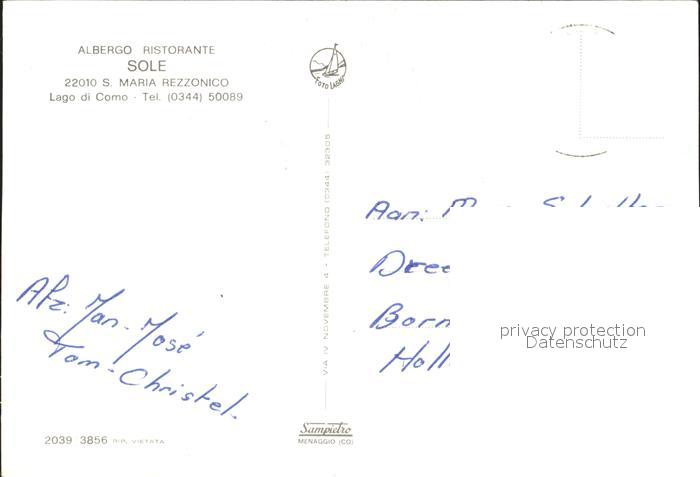 ALBERGO RISTORANTE
SOLE
22010 S. MARIA REZZONICO
Lago di Como - Tel. (0344) 50089
FOTO LAGHI
VIA IV NOVEMBRE 4 - TELEFONO (0344) 32305
Aan:
Born
Holl
privacy protection
Datenschutz
Afz: Jan - José
Tom - Christel.
2039 3856 RIP. VIETATA
Sampietro
MENAGGIO (CO)